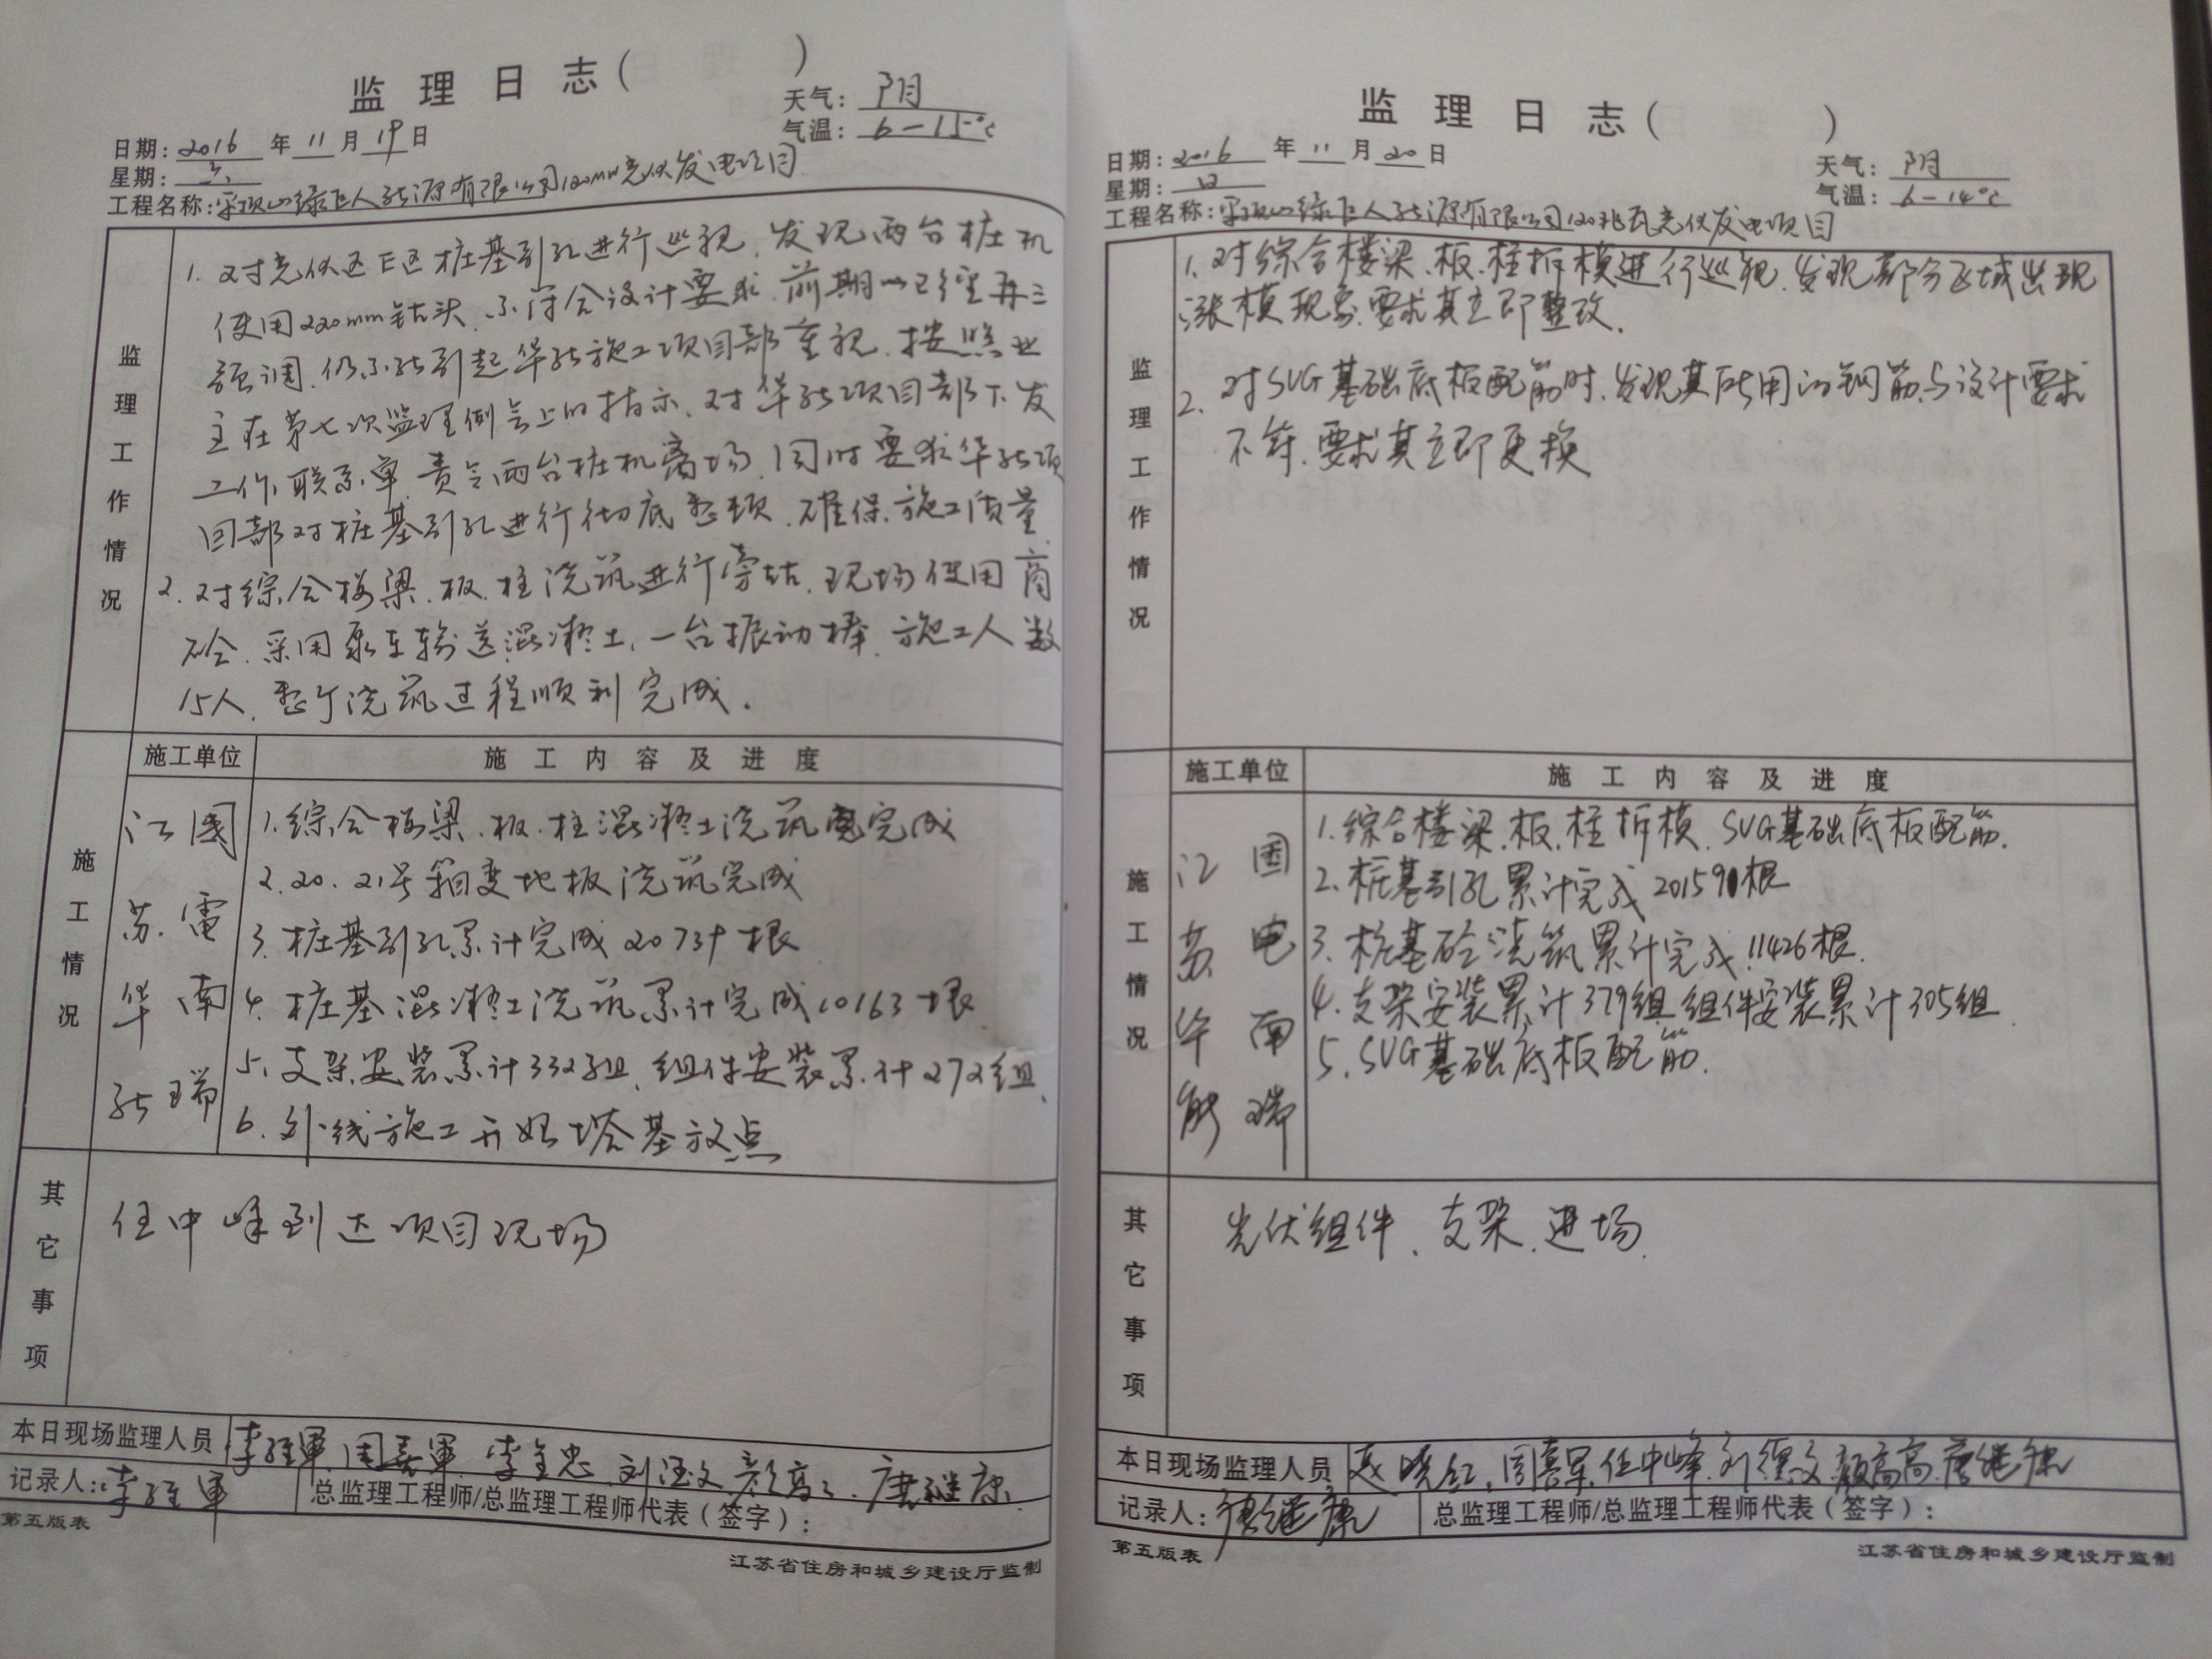 监理日志( )
天气: 阴
日期: 2016 年 11 月 19 日
气温: 6-15℃
星期: 六
工程名称: 平顶山绿巨人能源有限公司120MW光伏发电项目
监理工作情况
1. 对光伏区E区桩基引孔进行巡视,发现两台桩机
使用220mm钻头,不符合设计要求,前期以已经再三
强调,仍不能引起华能施工项目部重视,按照业
主在第七次监理例会上的指示,对华能项目部下发
工作联系单,责令两台桩机离场,同时要求华能项
目部对桩基引孔进行彻底整顿,确保施工质量
2. 对综合楼梁.板.柱浇筑进行旁站,现场使用商
砼,采用泵车输送混凝土,一台振动棒,施工人数
15人,整个浇筑过程顺利完成.
施工情况
施工单位 施工内容及进度
江苏华能 国電南瑞
1.综合楼梁.板.柱混凝土浇筑完成
2.20.21号箱变地板浇筑完成
3.桩基引孔累计完成20739根
4.桩基混凝土浇筑累计完成10163根
5.支架安装累计332组,组件安装累计272组
6.外线施工开始塔基放点
其它事项
任中峰到达项目现场
本日现场监理人员 周喜軍 李金忠 刘德文 颜高高 唐继康
记录人:
总监理工程师/总监理工程师代表(签字):
第五版表
江苏省住房和城乡建设厅监制
监理日志( )
日期: 2016 年 11 月 20 日
天气: 阴
星期: 日
气温: 6-14℃
工程名称: 平顶山绿巨人能源有限公司120兆瓦光伏发电项目
监理工作情况
1.对综合楼梁.板.柱拆模进行巡视,发现部分区域出现
涨模现象,要求其立即整改.
2. 对SVG基础底板配筋时,发现其所用的钢筋与设计要求
不符,要求其立即更换
施工情况
施工单位 施工内容及进度
江苏华能 国电南瑞
1.综合楼梁.板.柱拆模,SVG基础底板配筋.
2.桩基引孔累计完成 根
3.桩基砼浇筑累计完成11426根.
4.支架安装累计379组,组件安装累计305组
5.SVG基础底板配筋.
其它事项
光伏组件、支架、进场.
本日现场监理人员 赵晓红,周喜军,任中峰,刘德文,颜高高,唐继康
记录人: 唐继康
总监理工程师/总监理工程师代表(签字):
第五版表
江苏省住房和城乡建设厅监制